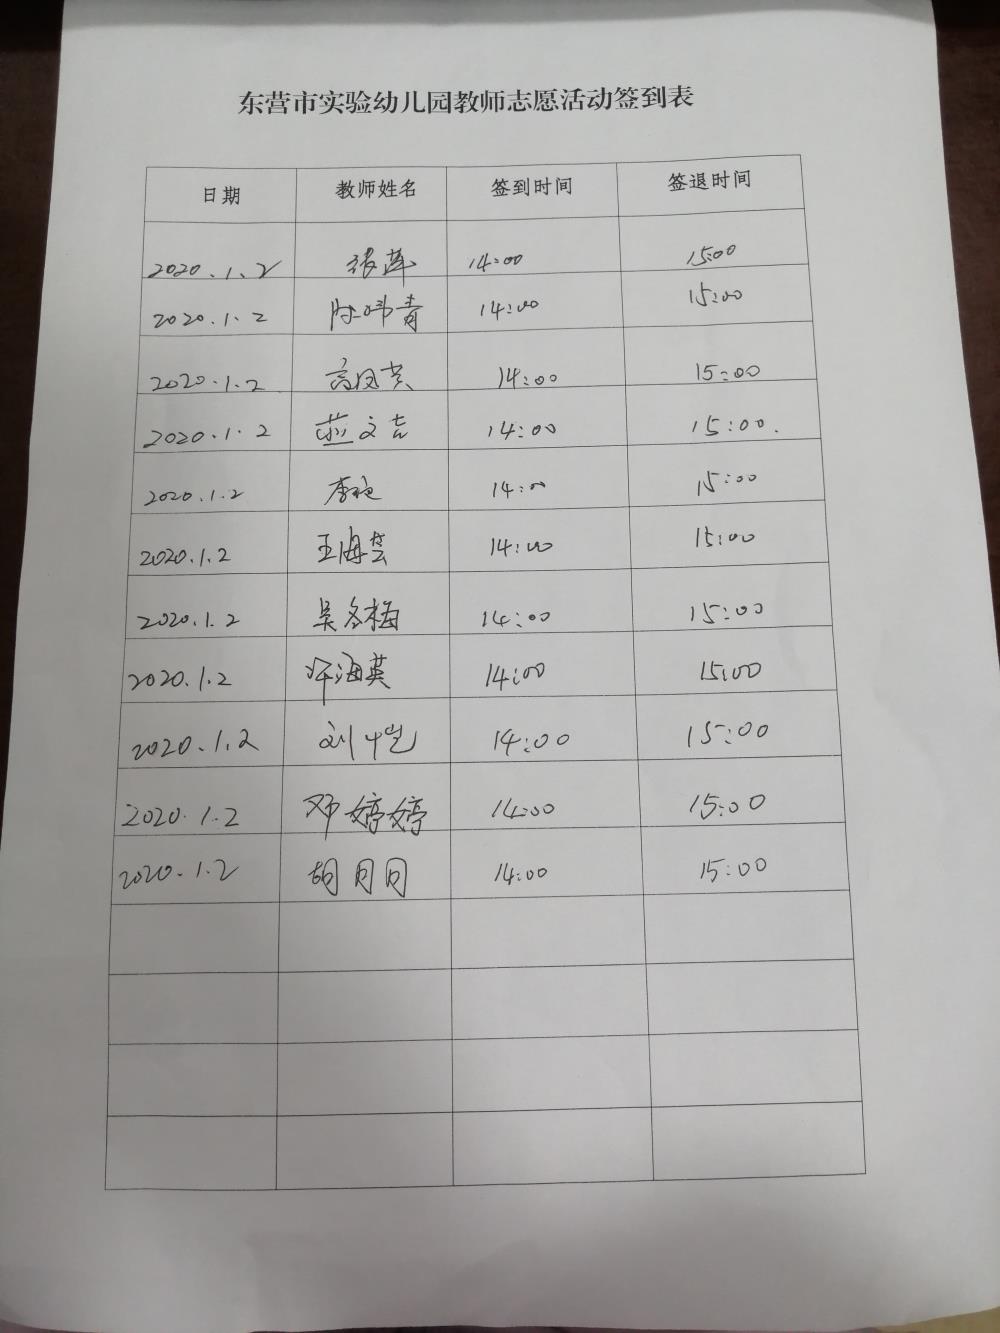 东营市实验幼儿园教师志愿活动签到表
日期 教师姓名 签到时间 签退时间
2020.1.2 张萍 14:00 15:00
2020.1.2 陈炜青 14:00 15:00
2020.1.2 高凤英 14:00 15:00
2020.1.2 燕文吉 14:00 15:00.
2020.1.2 李 14:00 15:00
2020.1.2 王海芸 14:00 15:00
2020.1.2 吴冬梅 14:00 15:00
2020.1.2 许海英 14:00 15:00
2020.1.2 刘 14:00 15:00
2020.1.2 邓婷婷 14:00 15:00
2020.1.2 胡月月 14:00 15:00